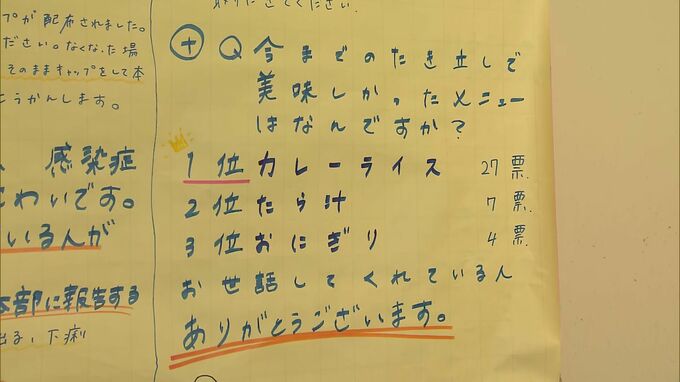 プが配布されました。
ださい。なくなった場
そのままキャップをして本
とうかんします。
感染症
こわいです。
いる人が
本部に報告する
出る、下痢
ください。
+ Q 今までのたき立しで
美味しかったメニュー
はなんですか？
1位 カレーライス 27票
2位 たら汁 7票
3位 おにぎり 4票
お世話してくれている人
ありがとうございます。